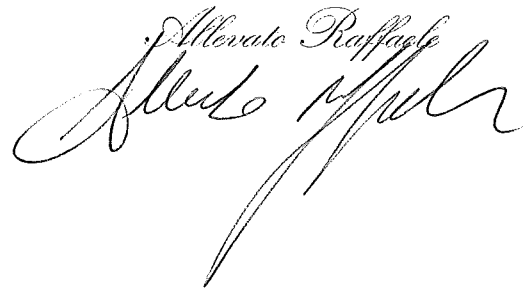 Allevato Raffaele
Allevato Raffaele